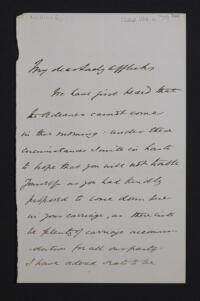 My dear Lady Affleck
We have just heard that
the Adeanes cannot come
in this morning: under these
circumstances I write in haste
to hope that you will not trouble
yourself as you had kindly
proposed to come down here
in your carriage, as there will
be plenty of carriage accommo-
dation for all our party.
I have asked to be